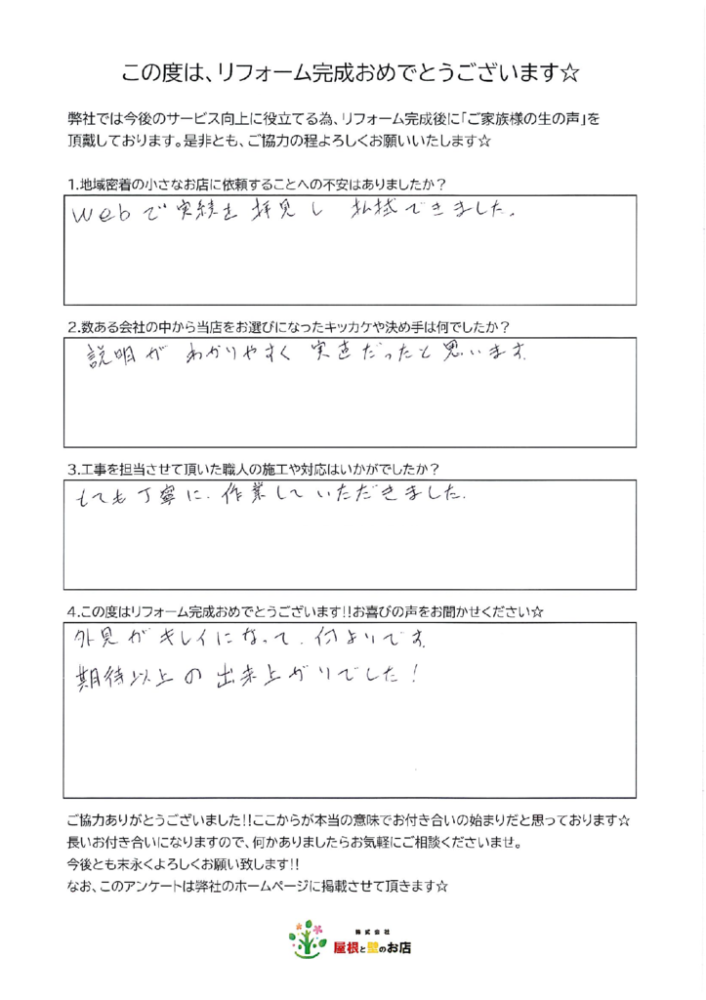 この度は、リフォーム完成おめでとうございます☆
弊社では今後のサービス向上に役立てる為、リフォーム完成後に「ご家族様の生の声」を
頂戴しております。是非とも、ご協力の程よろしくお願いいたします☆
1.地域密着の小さなお店に依頼することへの不安はありましたか？
Webで実績を拝見し 払拭できました。
2.数ある会社の中から当店をお選びになったキッカケや決め手は何でしたか？
説明がわかりやすく 実直だったと思います。
3.工事を担当させて頂いた職人の施工や対応はいかがでしたか？
とても丁寧に、作業していただきました。
4.この度はリフォーム完成おめでとうございます!!お喜びの声をお聞かせください☆
外見がキレイになって、何よりです。
期待以上の出来上がりでした！
ご協力ありがとうございました!!ここからが本当の意味でお付き合いの始まりだと思っております☆
長いお付き合いになりますので、何かありましたらお気軽にご相談くださいませ。
今後とも末永くよろしくお願い致します!!
なお、このアンケートは弊社のホームページに掲載させて頂きます☆
株式会社
屋根と壁のお店